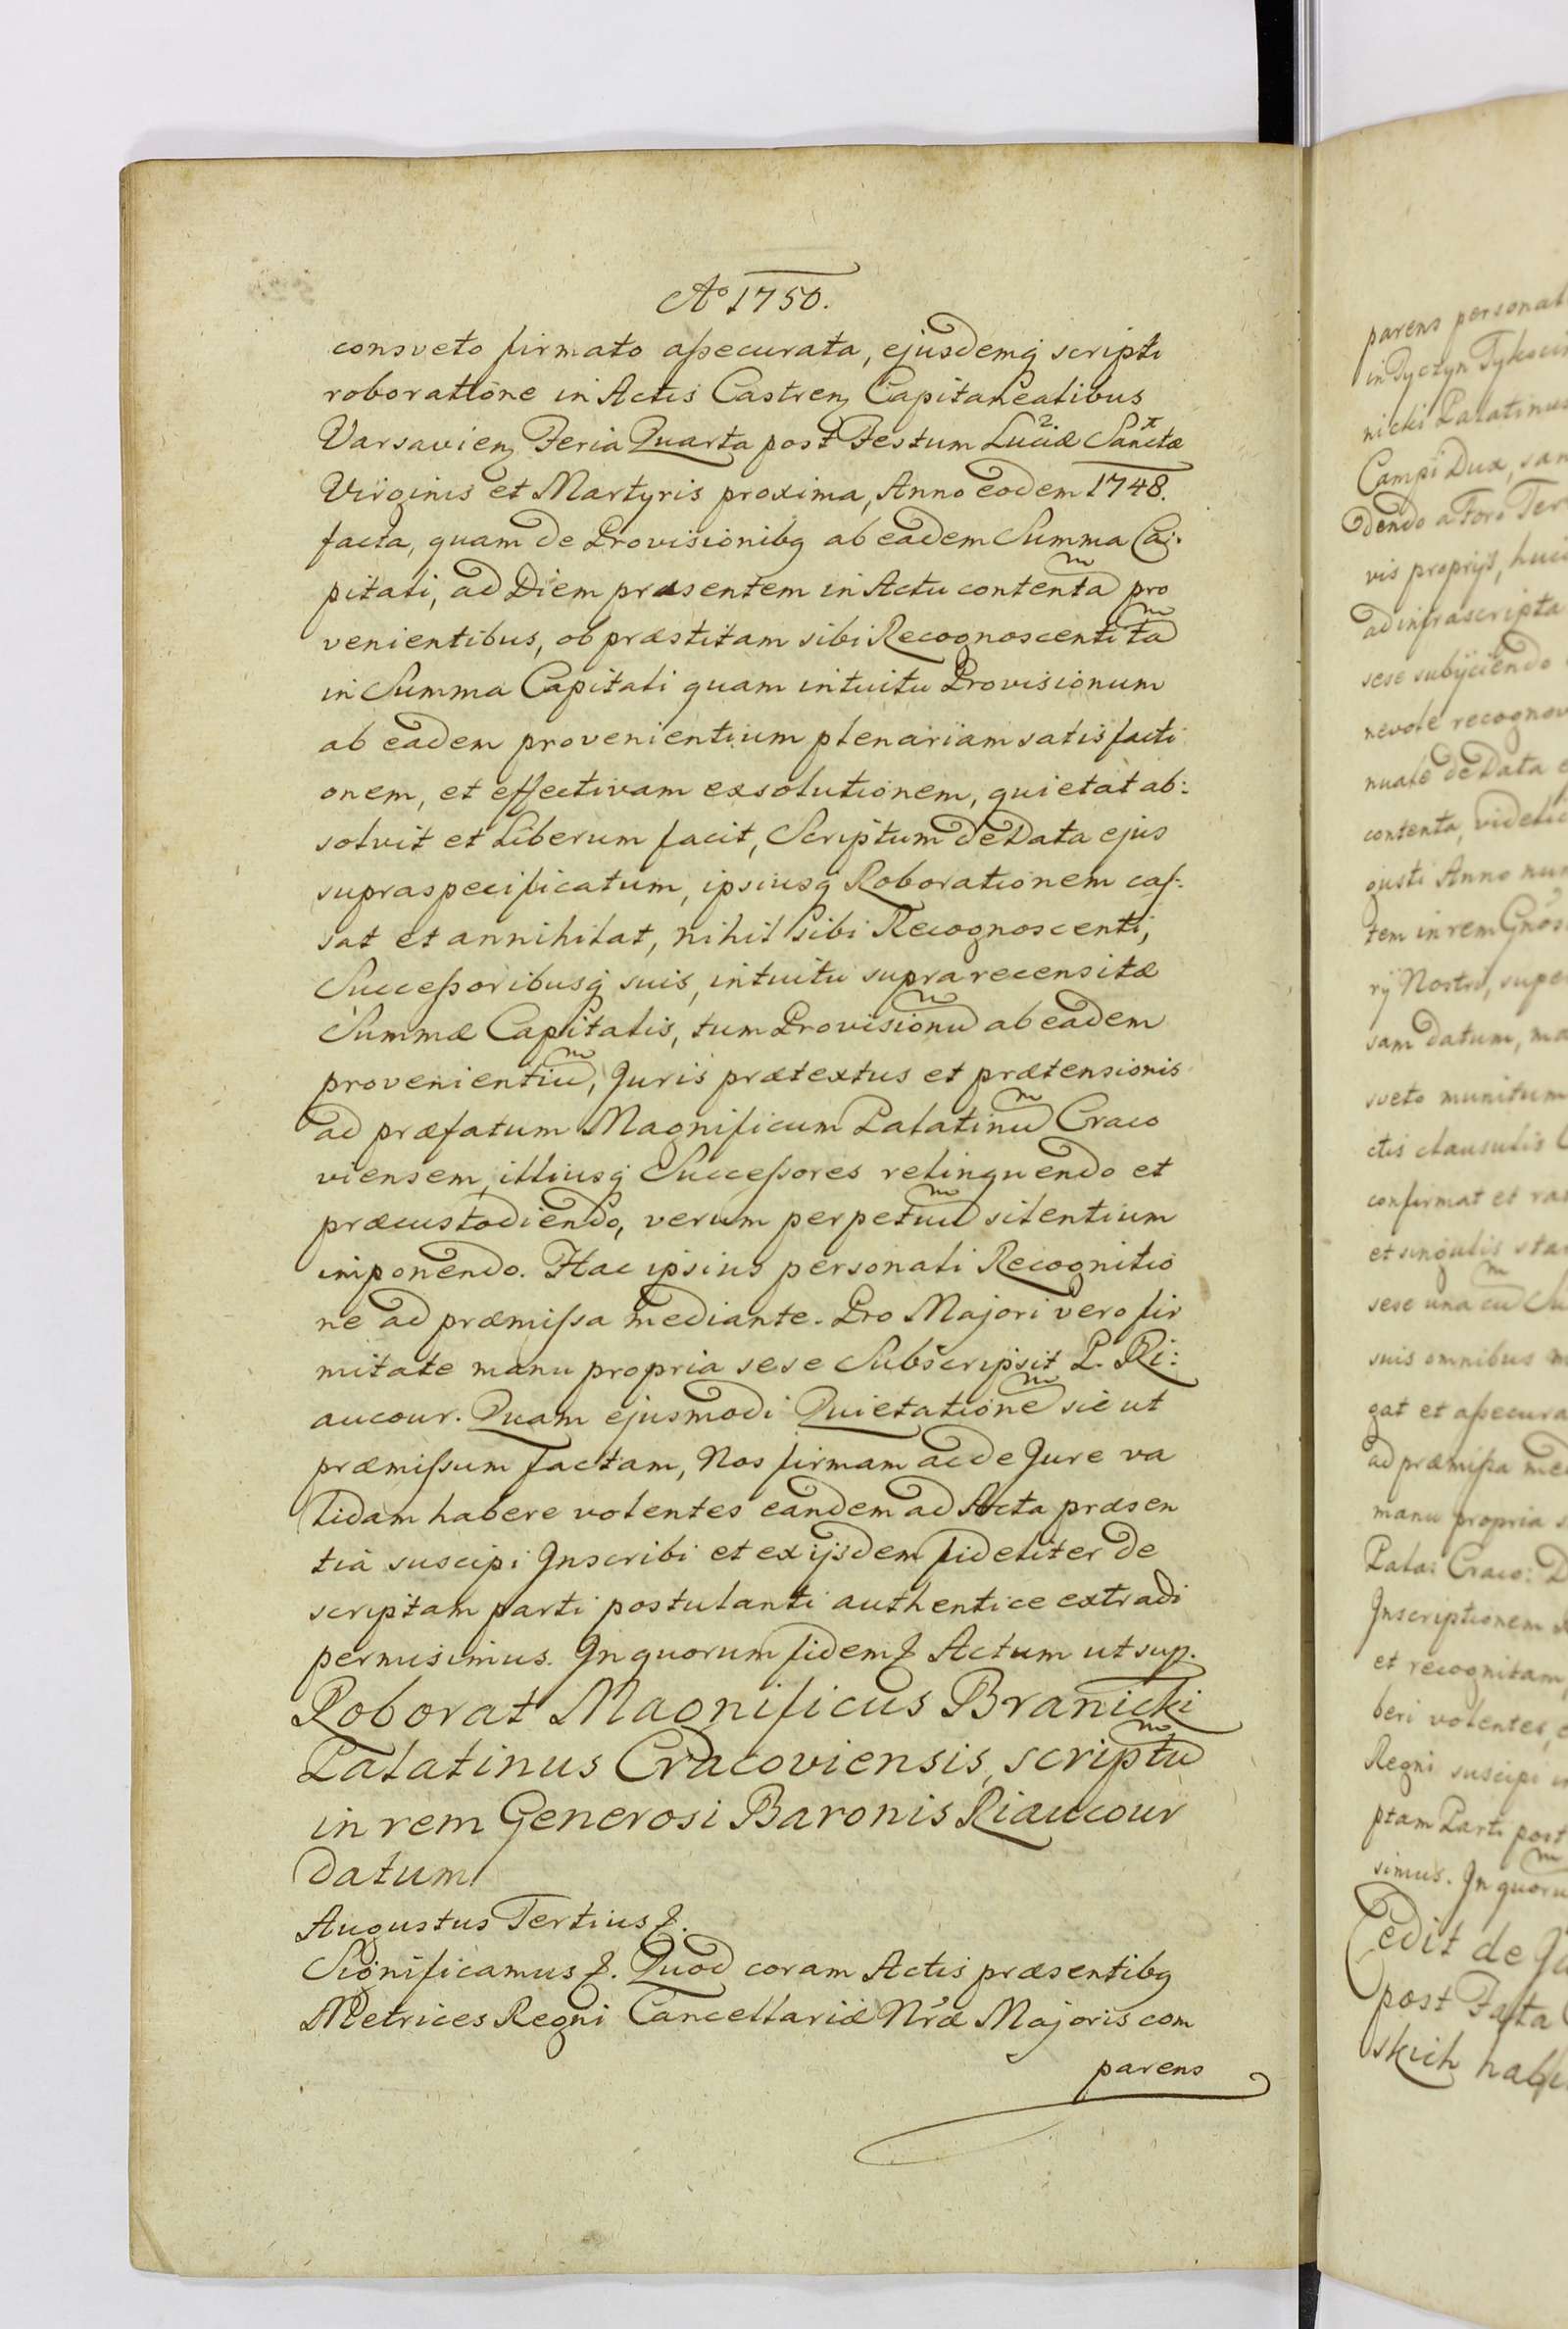 Aº 1750.
consveto firmato aſsecurata, ejusdemq́ scripti
roboratione in Actis Castren̨ Capitanealibus
Varsavien̨ Feria Quarta post Festum Luciæ Sanctæ
Virginis et Martyris proxima, Anno eodem 1748.
facta, quam de Provisionibq ab eadem Summa Ca:
pitali, ad Diem præsentem in Actu contenta pro
venientibus, ob præstitam sibi Recognoscenti ta̅
in Summa Capitali quam intuitu Provisionum
ab eadem provenientium plenariam satisfacti
onem, et effectivam exsolutionem, quietat ab:
solvit et Liberum facit, Scriptum de Data ejus
supraspecificatum, ipsiusq́ Roborationem caſ:
sat et annihilat, nihil sibi Recognoscenti,
Succeſsoribusq́ suis, intuitu suprarecensitæ
Summæ Capitalis, tum Provisionu̅ ab eadem
provenientiu̅, Juris prætextus et prætensionis
ad præfatum Magnificum Palatinu̅ Craco
viensem, illiusq́ Succeſsores relinquendo et
præcustodiendo, verum perpetuu̅ silentium
imponendo. Hac ipsius personali Recognitio
ne ad præmiſsa mediante. Pro Majori vero fir
mitate manu propria sese Subscripsit P. Ri:
aucour. Quam ejusmodi Quietatione̅ sic ut
præmiſsum factam, Nos firmam ac de Jure va
lidam habere volentes eandem ad Acta præsen
tia suscipi Inscribi et ex ijsdem fideliter de
scriptam parti postulanti authentice extradi
permisimus. In quorum fidem & Actum ut sup.
Roborat Magnificus Branicki
Palatinus Cracoviensis, scriptu̅
in rem Generosi Baronis Riaucour
datum
Augustus Tertius &.
Significamus &. Quod coram Actis præsentibq
Metrices Regni Cancellariæ Nræ Majoris com
parens
parens personal
in Tyczyn Tykocin
nicki Palatinus
Campi Dux, san
dendo a Foro Ter
vis proprijs, huic
ad infrascripta
sese subijciendo
nevole recognov
nuale de Data e
contenta, videlic
gusti Anno nun
tem in rem Gnosi
rij Nostri, supe
sam datum, ma
sveto munitum
ctis clausulis
confirmat et ra
et singulis sta
sese una cu̅ Su
suis omnibus
gat et aſsecura
ad præmiſsa me
manu propria s
Pala: Craco: D
Inscriptionem
et recognitam
beri volentes, e
Regni suscipi in
ptam Parti post
simus. In quoru̅
Cedit de Ju
post Fata
skich habi